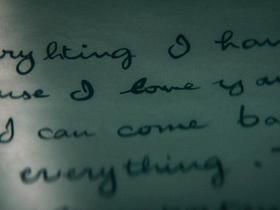 rything I hav
use I love y
I can come ba
everything.